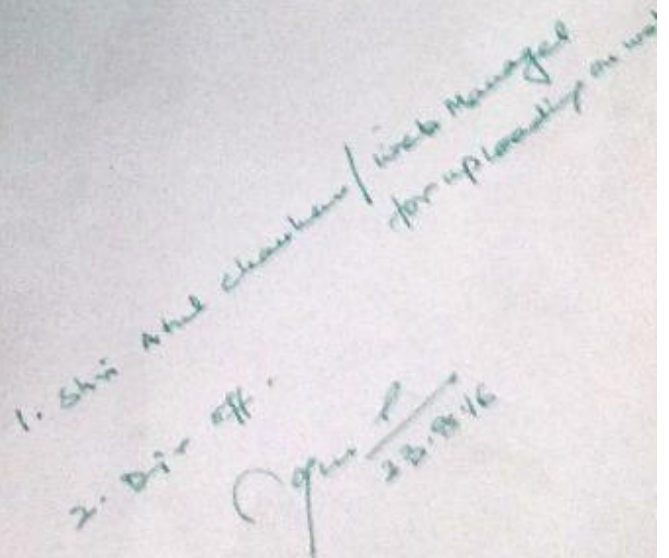 1. Shri Atul Chauhan / Web Manager
for uploading on web
2. Dir off.
23.8.16